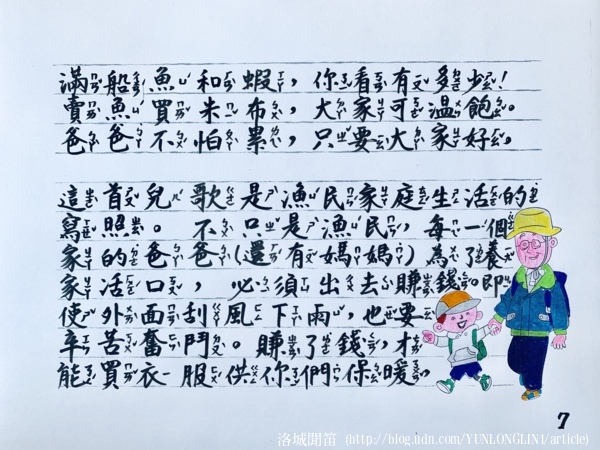 滿船魚和蝦，你看有多少！
賣魚買米布，大家可溫飽。
爸爸不怕累，只要大家好，
這首兒歌是漁民家庭生活的
寫照。不只是漁民，每一個
家的爸爸(還有媽媽)為了養
家活口，必須出去賺錢。即
使外面刮風下雨，也要
辛苦奮鬥。賺了錢，才
能買衣服供你們保暖，
7
洛城聞笛 (http://blog.udn.com/YUNLONGLIN1/article)